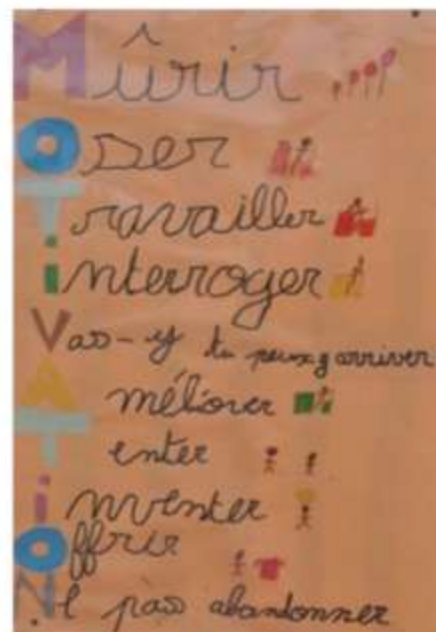 Mûrir
Oser
Travailler
interroger
Vas-y tu peux y arriver
Améliorer
Tenter
inventer
Offrir
Ne pas abandonner